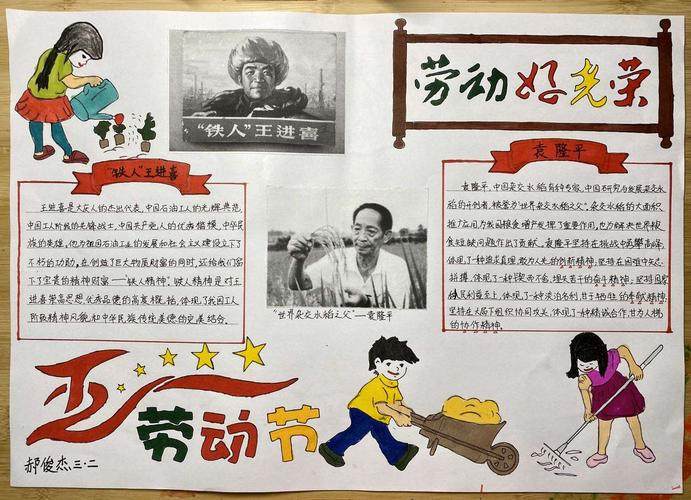 "铁人"王进喜
劳动好光荣
"铁人"王进喜
王进喜是大庆人的杰出代表,中国石油工人的光辉典范,
中国工人阶级的先锋战士,中国共产党人的优秀楷模,中华民
族的英雄。他为祖国石油工业的发展和社会主义建设立下了
不朽的功勋,在创造了巨大物质财富的同时,还给我们留
下了宝贵的精神财富——铁人精神。铁人精神是对王
进喜崇高思想、优秀品德的高度概括,体现了我国工人
阶级精神风貌和中华民族传统美德的完美结合。
袁隆平
袁隆平,中国杂交水稻育种专家,中国研究与发展杂交水
稻的开创者,被誉为"世界杂交水稻之父"。杂交水稻的大面积
推广应用,为我国粮食增产发挥了重要作用,也为解决世界粮
食短缺问题作出了贡献。袁隆平坚持在挑战中攀高峰,
体现了一种追求真理、敢为人先的创新精神;坚持在困难中久
拼搏,体现了一种锲而不舍、埋头苦干的奋斗精神;坚持国家
人民利益至上,体现了一种淡泊名利、甘于牺牲的奉献精神;
坚持在大局下组织协同攻关,体现了一种精诚合作、甘为人梯
的协作精神。
"世界杂交水稻之父"—袁隆平
五一
劳动节
郝俊杰,三·二